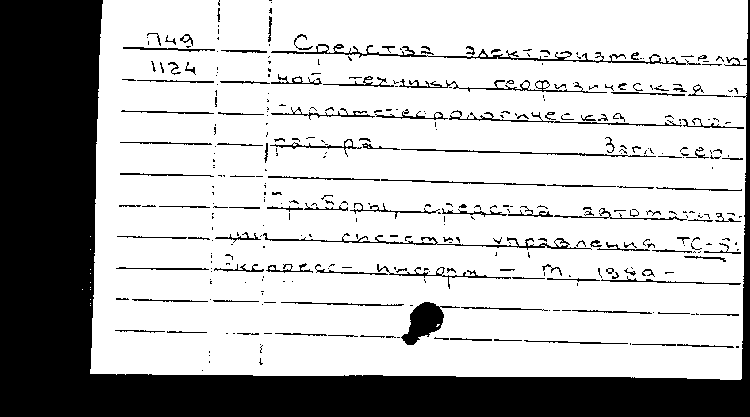 П49
1124
Средства электроизмеритель-
ной техники, геофизическая и
гидрометеорологическая аппа-
ратура. Загл. сер.
Приборы, средства автоматиза-
ции и системы управления ТС-5:
Экспресс-информ. — М., 1989-